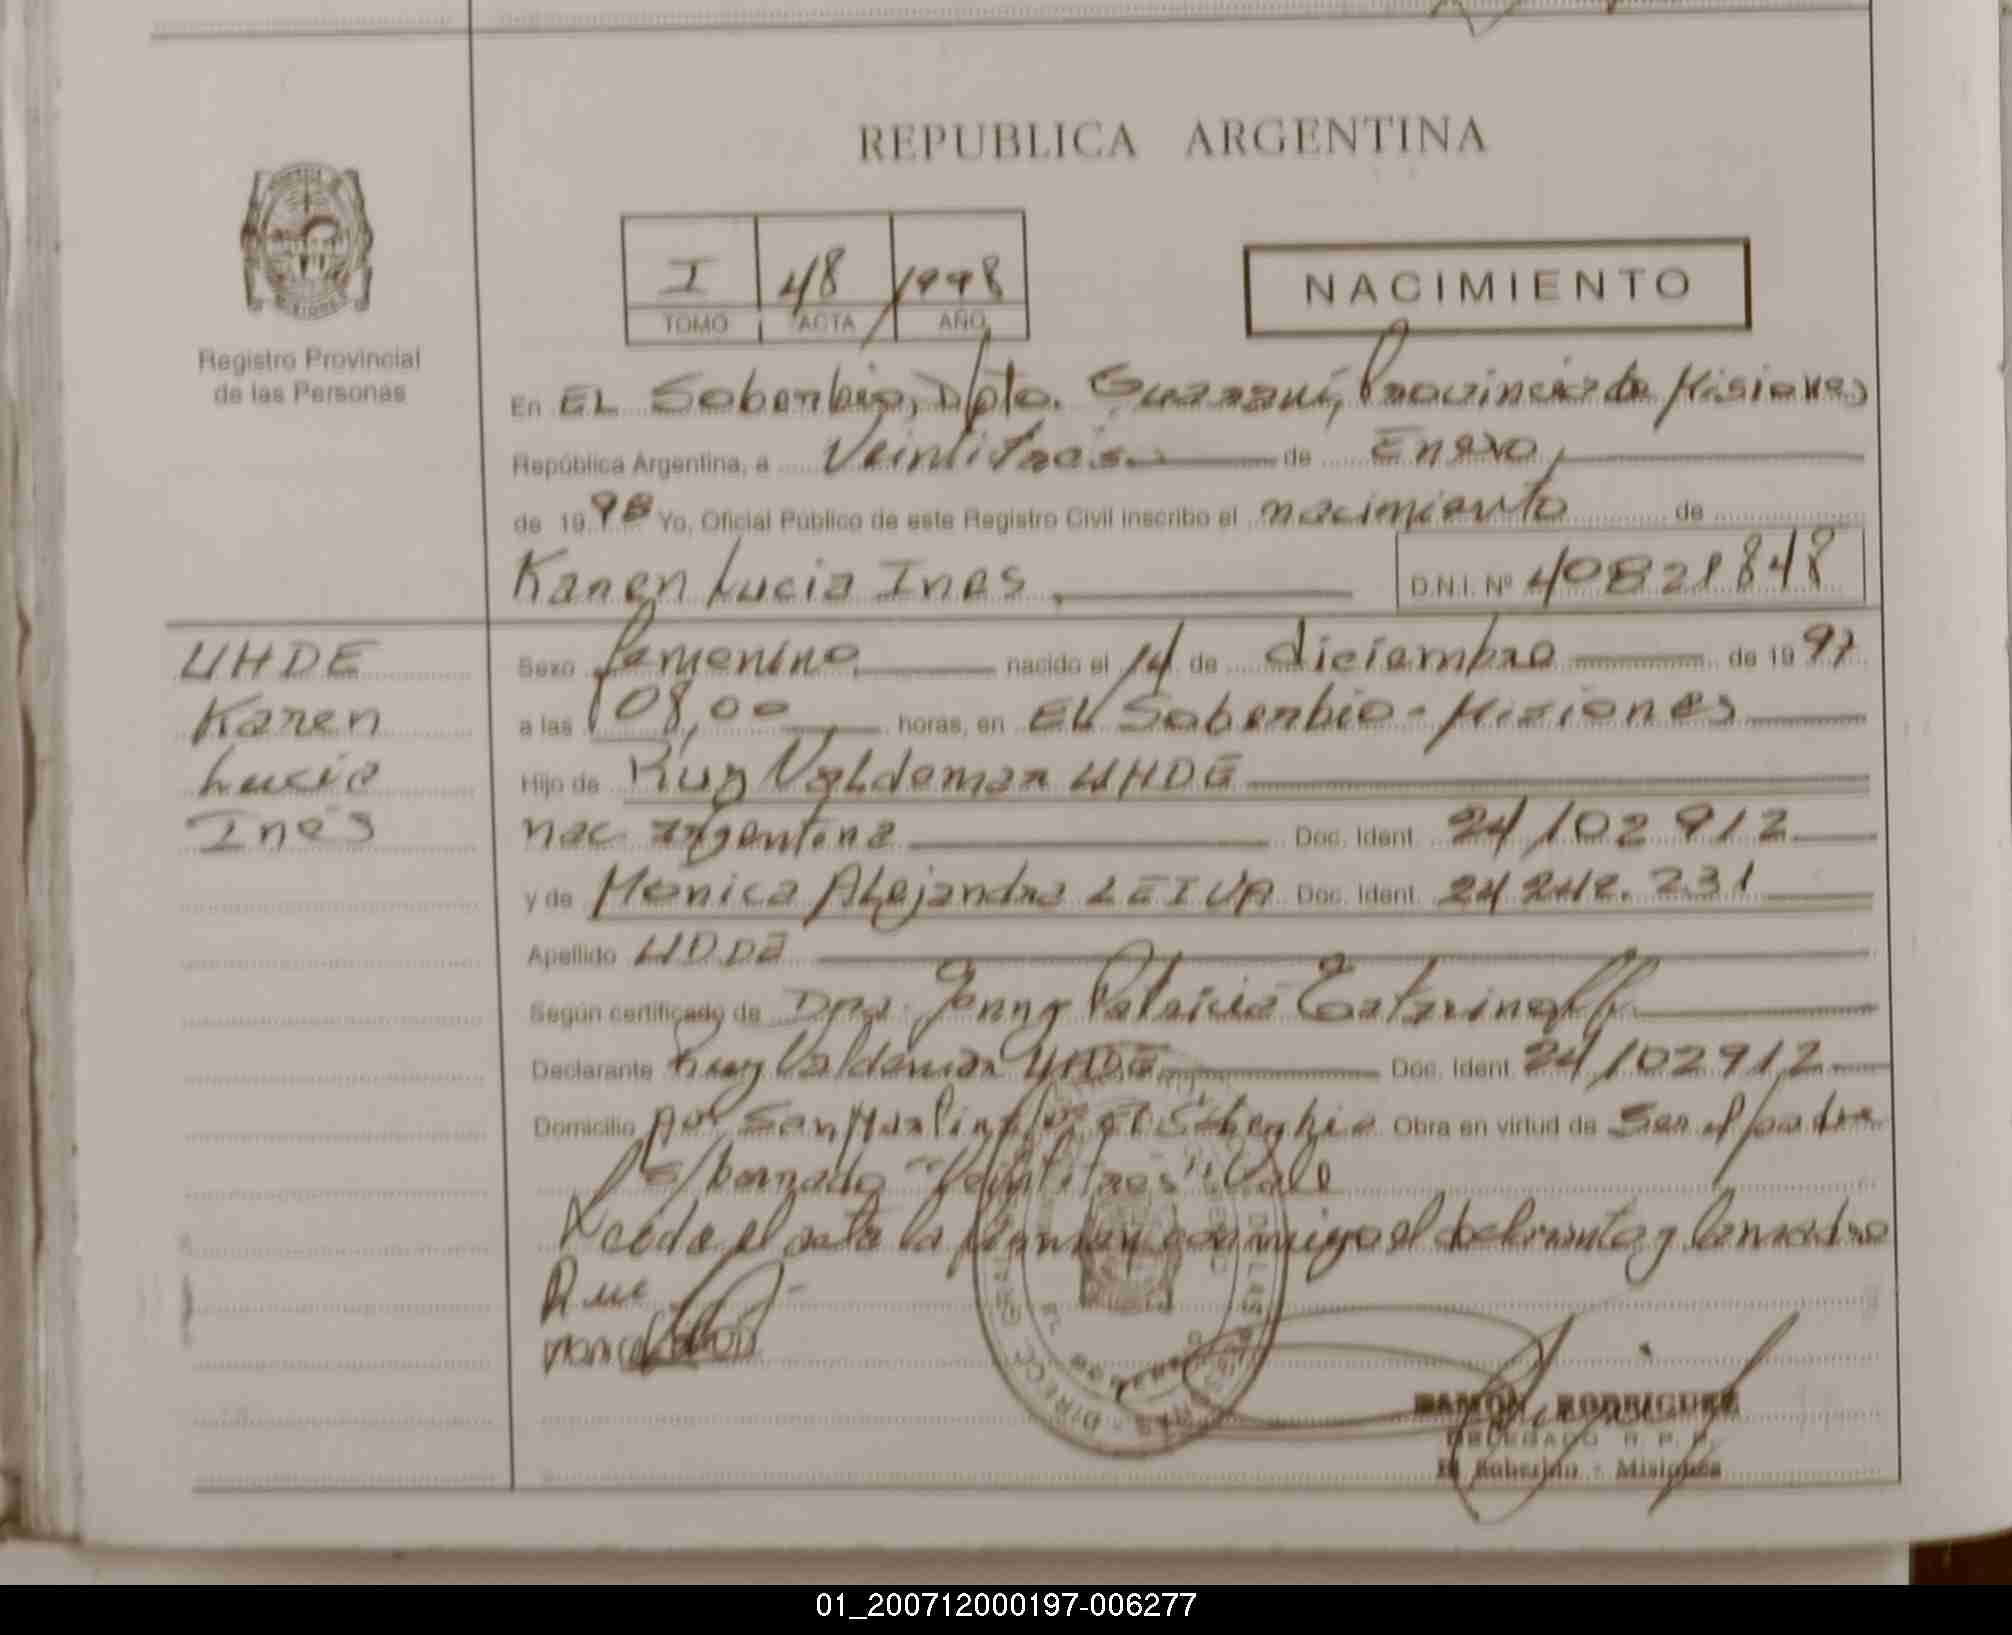 REPUBLICA ARGENTINA
Registro Provincial
de las Personas
I 48 1998
TOMO ACTA AÑO
NACIMIENTO
En EL Soberbio, Dpto. Guaraní, Provincia de Misiones
República Argentina, a Veintitres de Enero,
de 1998 Yo, Oficial Público de este Registro Civil inscribo el nacimiento de
Karen Lucia Ines, D.N.I. Nº 40821848
UHDE
Karen
Lucia
Inés
Sexo femenino nacido el 14 de diciembre de 1997
a las 08,00 horas, en EL Soberbio - Misiones
Hijo de Ruy Valdemar UHDE
nac. argentina Doc. Ident. 24102912
y de Monica Alejandra LEIVA Doc. Ident. 24242.231
Apellido
Según certificado de Dra. Jenny Patricia
Declarante Ruy Valdemar UHDE Doc. Ident. 24102912
Domicilio Av. San Martin El Soberbio Obra en virtud de Ser el padre
"Veintitres" Vale
Leida el acta la firman conmigo el declarante y la madre
RAMON RODRIGUEZ
DELEGADO R. P. P.
El Soberbio - Misiones
01_200712000197-006277